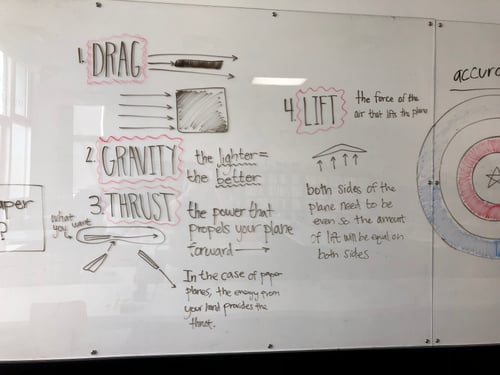 1. DRAG
2. GRAVITY
the lighter =
the better
3. THRUST
what
you want
the power that
propels your plane
forward
In the case of paper
planes, the energy from
your hand provides the
thrust.
4. LIFT
the force of the
air that lifts the plane
both sides of the
plane need to be
even so the amount
of lift will be equal on
both sides
aper
?
accura